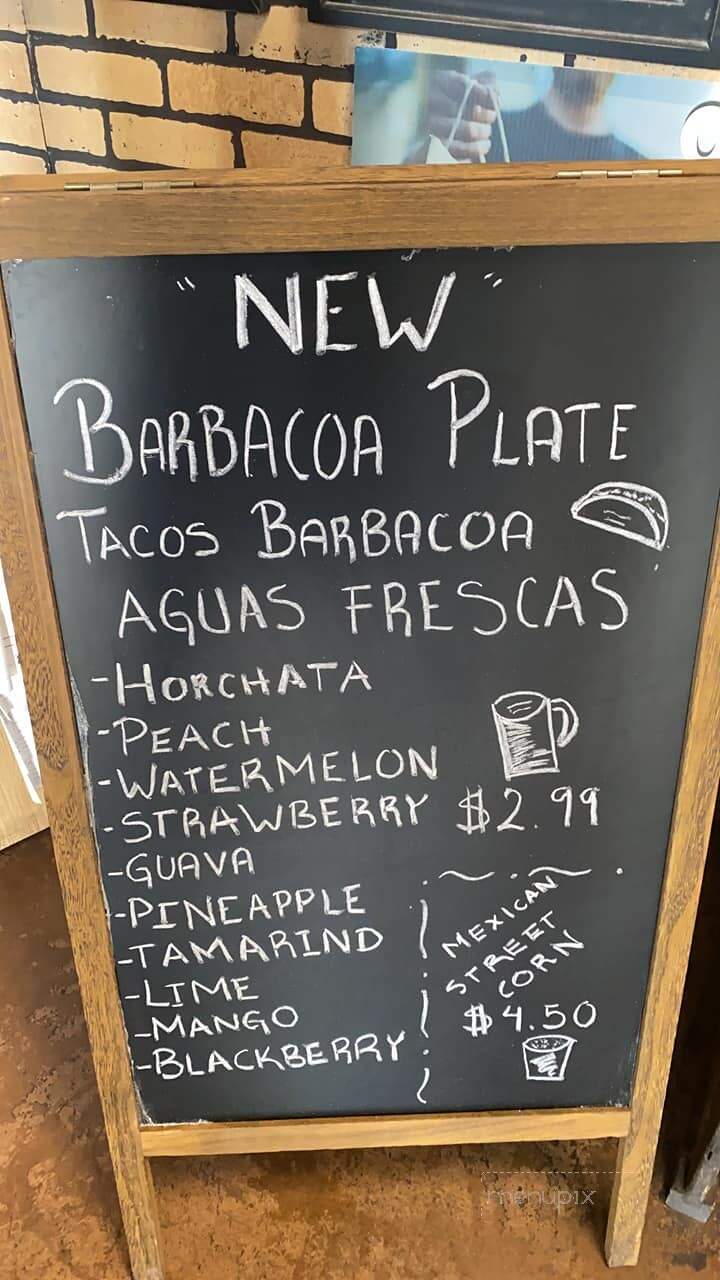 "NEW"
BARBACOA PLATE
TACOS BARBACOA
AGUAS FRESCAS
-HORCHATA
-PEACH
-WATERMELON
-STRAWBERRY $2.99
-GUAVA
-PINEAPPLE
-TAMARIND
-LIME
-MANGO
-BLACKBERRY
MEXICAN
STREET
CORN
$4.50
menupix